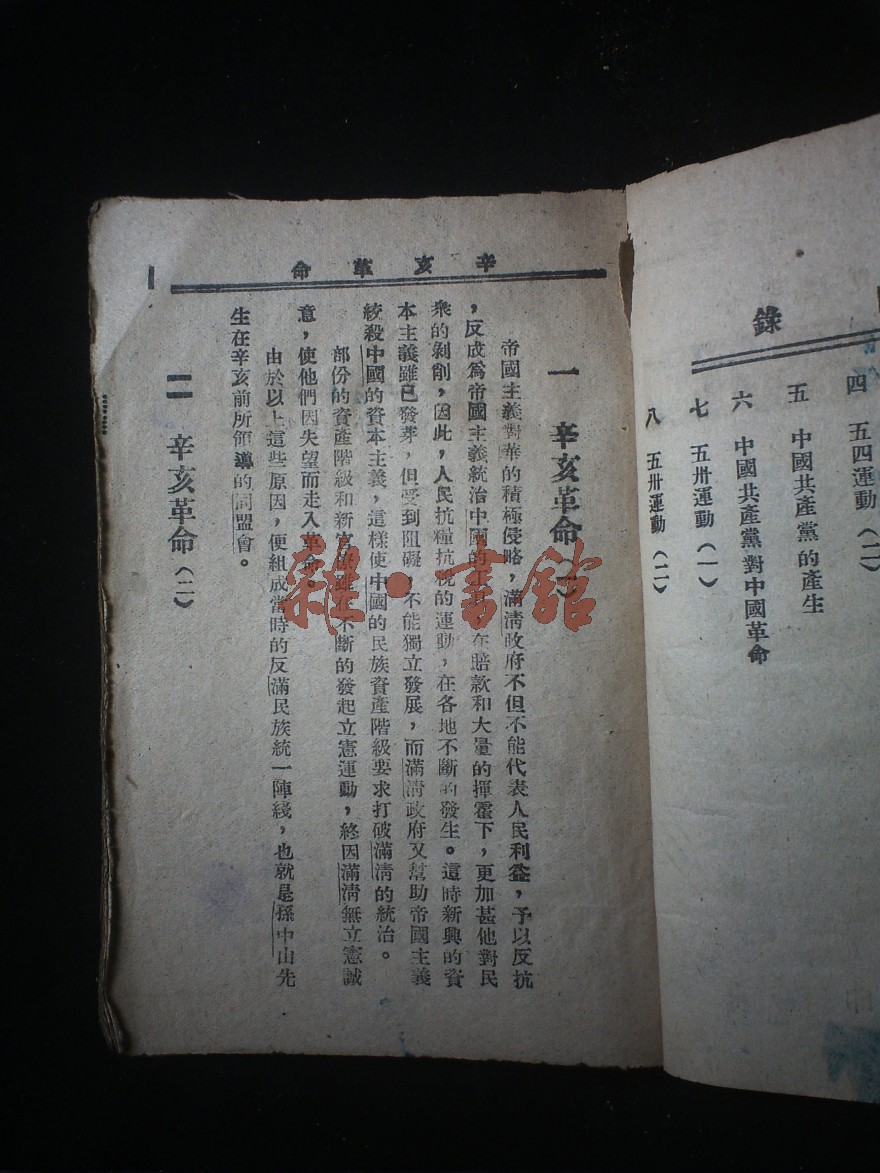 錄
四 五四運動(二)
五 中國共產黨的產生
六 中國共產黨對中國革命
七 五卅運動(一)
八 五卅運動(二)
辛亥革命
一
一 辛亥革命(一)
帝國主義對華的積極侵略,滿清政府不但不能代表人民利益,予以反抗
,反成爲帝國主義統治中國的工具,在賠款和大量的揮霍下,更加甚他對民
衆的剝削,因此,人民抗糧抗稅的運動,在各地不斷的發生。這時新興的資
本主義雖已發芽,但受到阻礙,不能獨立發展,而滿清政府又幫助帝國主義
絞殺中國的資本主義,這樣使中國的民族資產階級要求打破滿清的統治。
部份的資產階級和新官僚雖在不斷的發起立憲運動,終因滿清無立憲誠
意,使他們因失望而走入革命。
由於以上這些原因,便組成當時的反滿民族統一陣綫,也就是孫中山先
生在辛亥前所領導的同盟會。
二 辛亥革命(二)
雜·書館